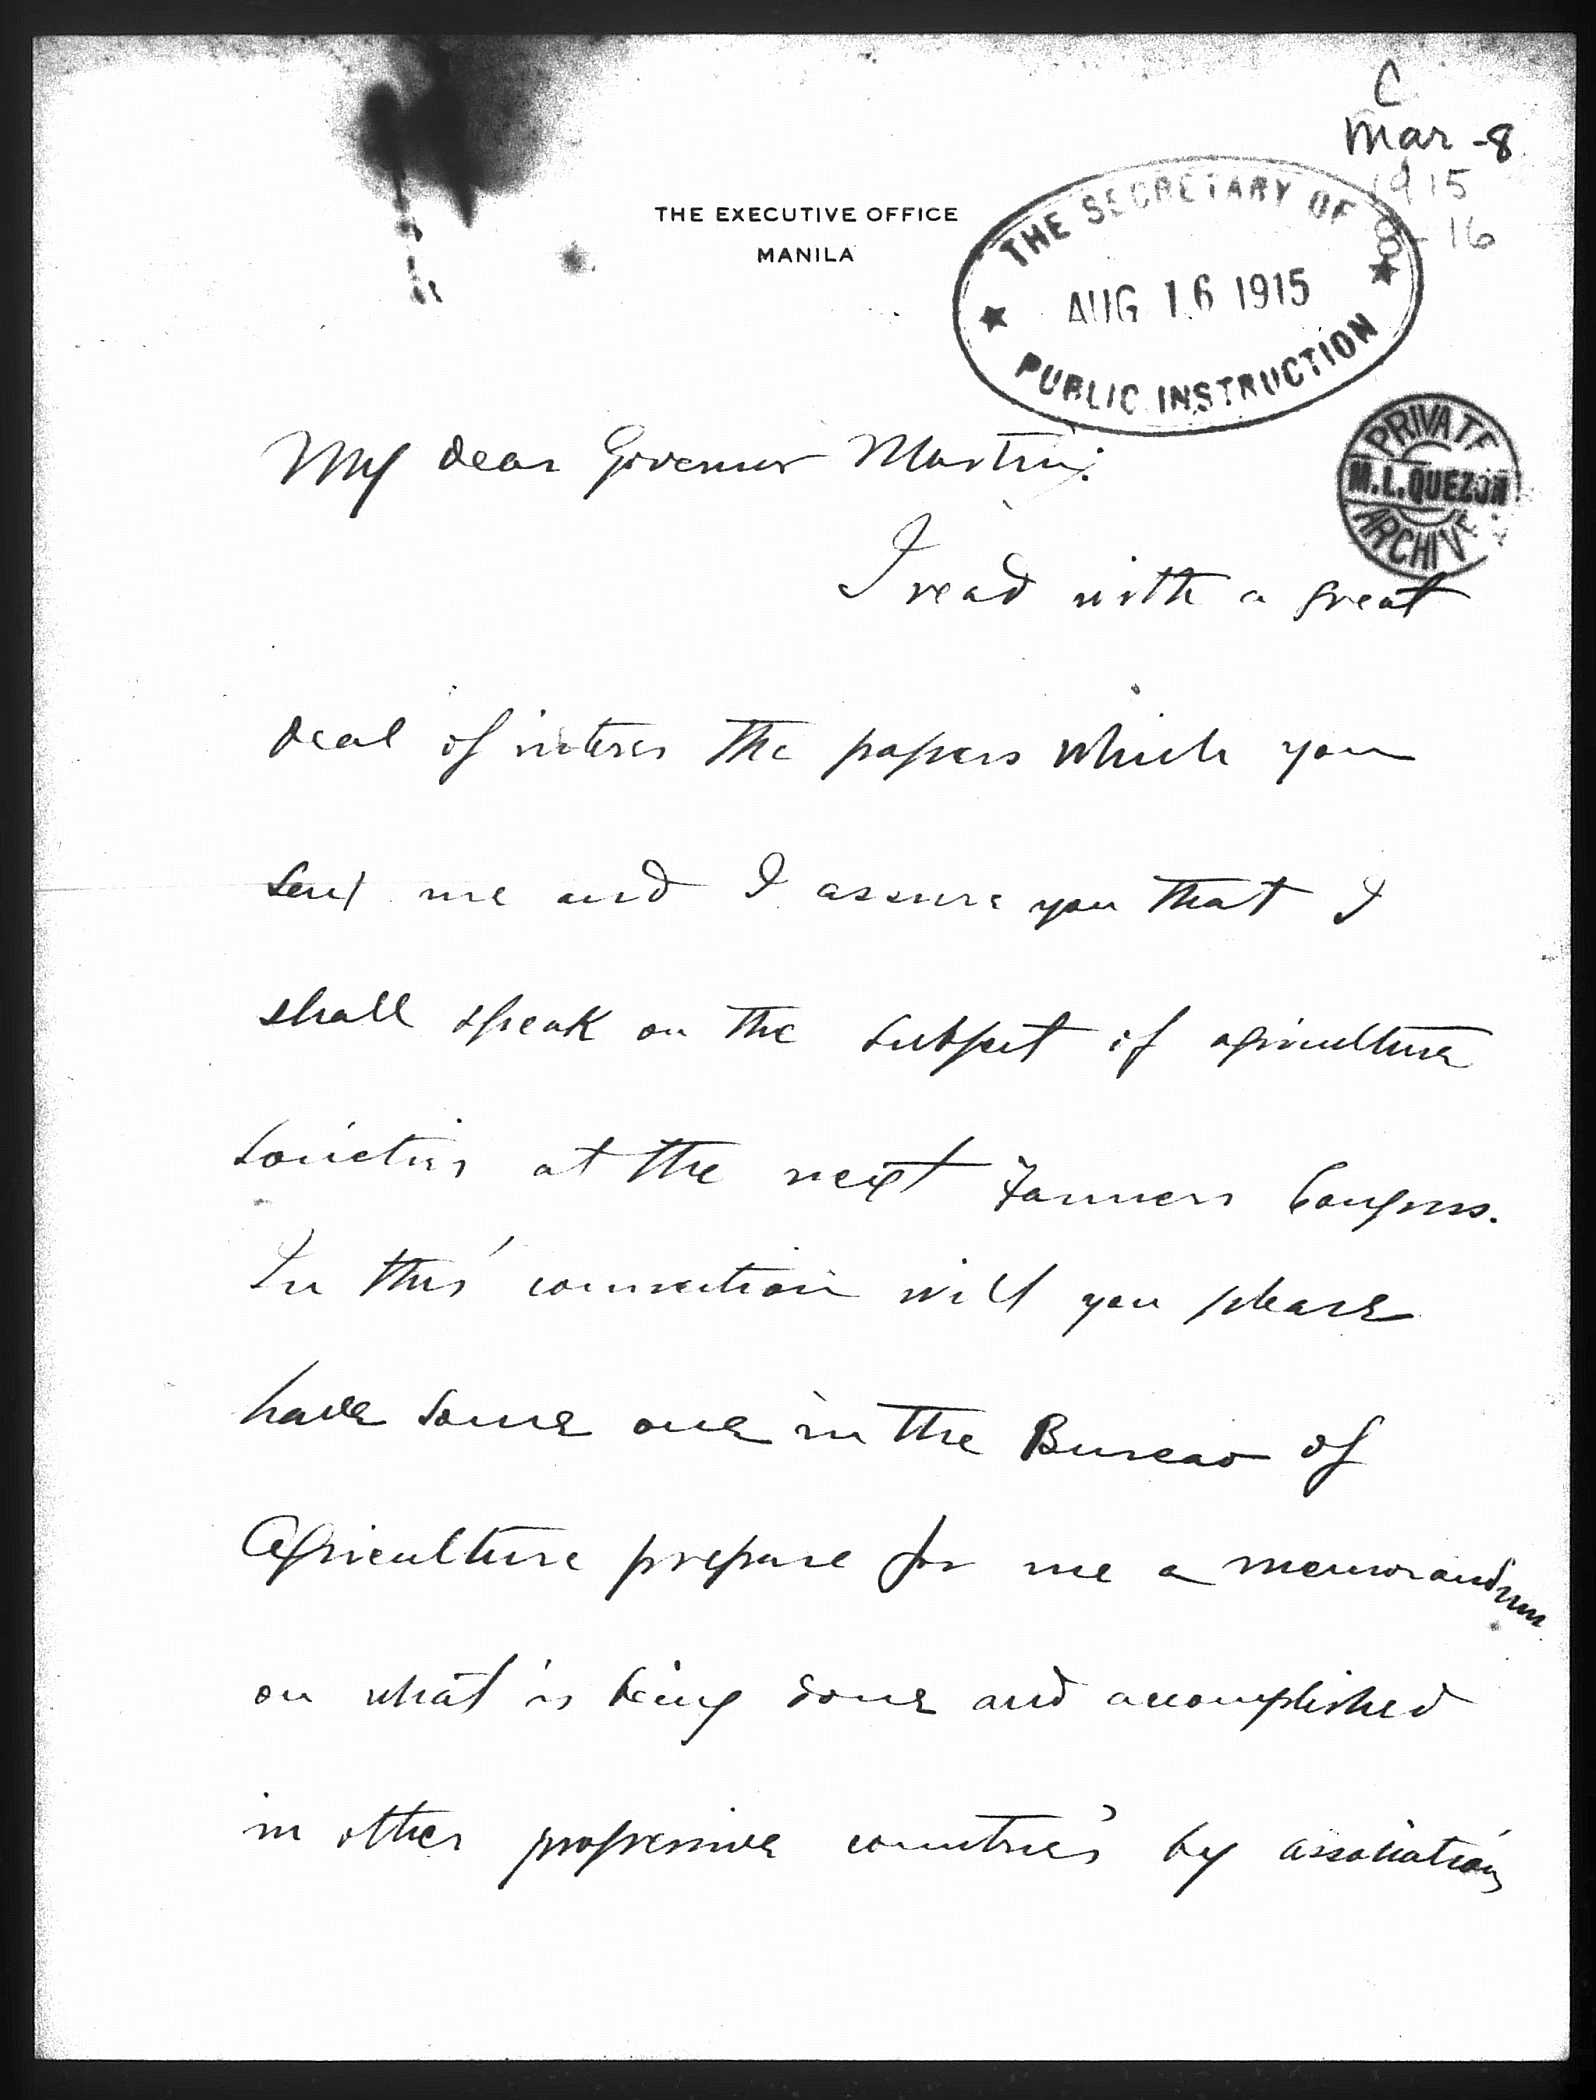 C
Mar -8
1915
8-16
THE EXECUTIVE OFFICE
MANILA
THE SECRETARY OF
AUG 16 1915
PUBLIC INSTRUCTION
PRIVATE
M.L.QUEZON
ARCHIVE
My dear Governor Martin:
I read with a great
deal of interes the papers which you
sent me and I assure you that I
shall speak on the subject of agriculture
societies at the next Farmers Congress.
In this connection will you please
have some one in the Bureao of
Agriculture prepare for me a memorandum
on what is being done and accomplished
in other progressive countries by associations